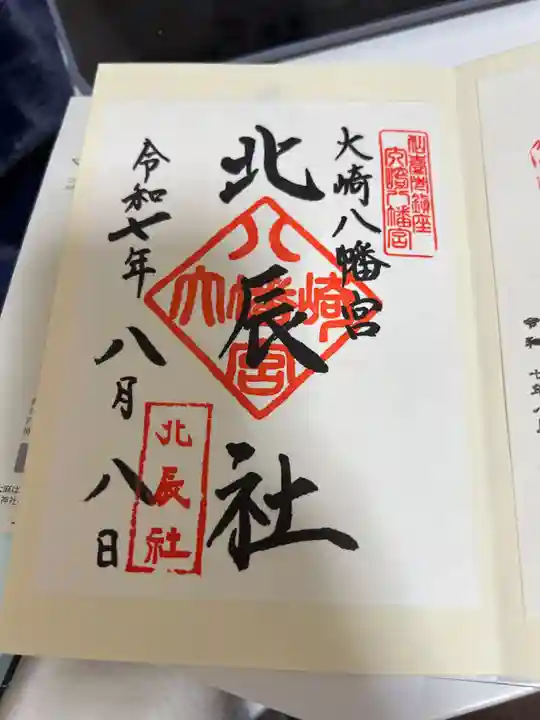 仙臺市鎮座
大崎八幡宮
大崎八幡宮
北辰社
八
大幡崎
宮
令和七年八月八日
北辰社
令和七年八月